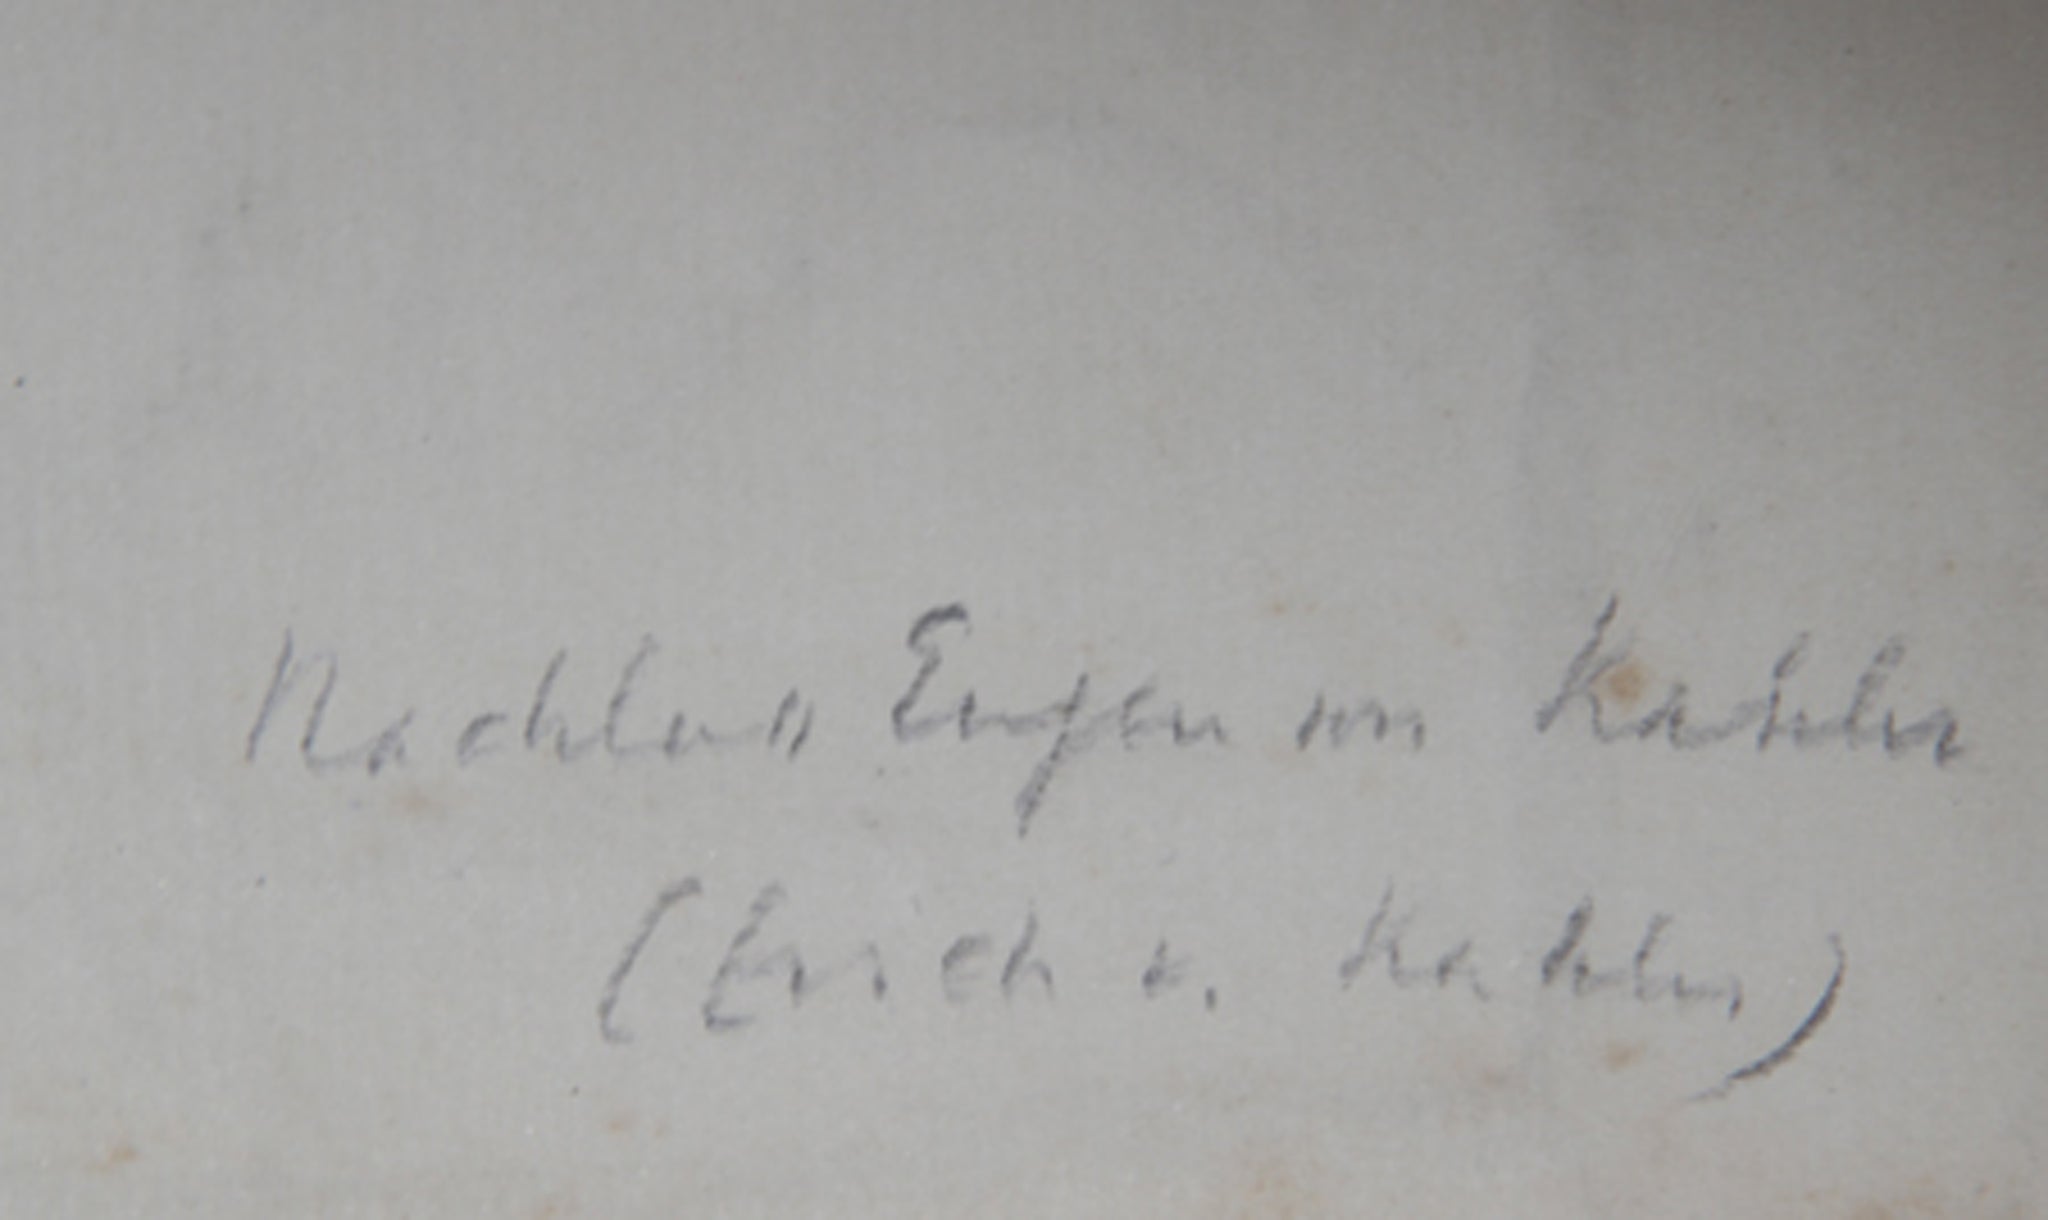 Nachlass Eugen von Kahler
(Erich v. Kahler)